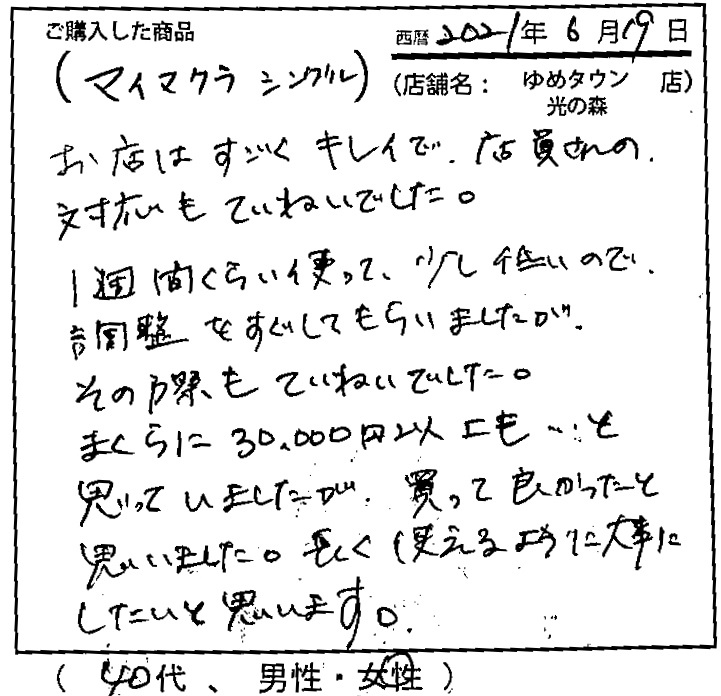 ご購入した商品
西暦 2021年 6月19日
(マイマクラ シングル)
(店舗名: ゆめタウン 店)
光の森
お店は すごく キレイで、店員さんの、
対応も ていねいでした。
1週間くらい使って、少し低いので、
調整をすぐしてもらいましたが、
その際も ていねいでした。
まくらに 30.000円以上も…と
思っていましたが、買って良かったと
思いました。長く使えるように大事に
したいと思います。
( 40代、男性・女性 )